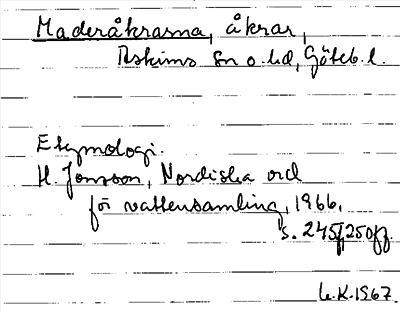 Maderåkrarna, åkrar,
Askims sn o. hd, Göteb. l.
Etymologi.
H. Jonsson, Nordiska ord
för vattensamling, 1966,
s. 245f, 250ff.
K. 1967.